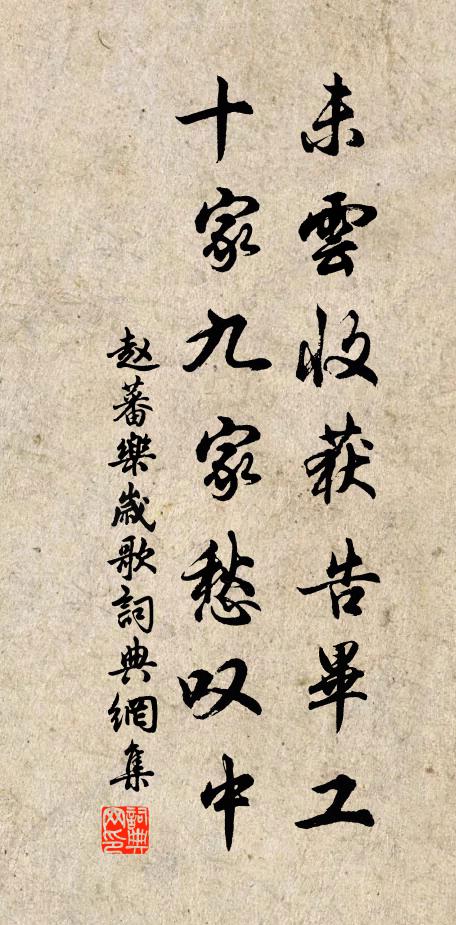 未雲收获告畢工
十家九家愁叹中
赵蕃樂歲歌詞典網集
詞典网印